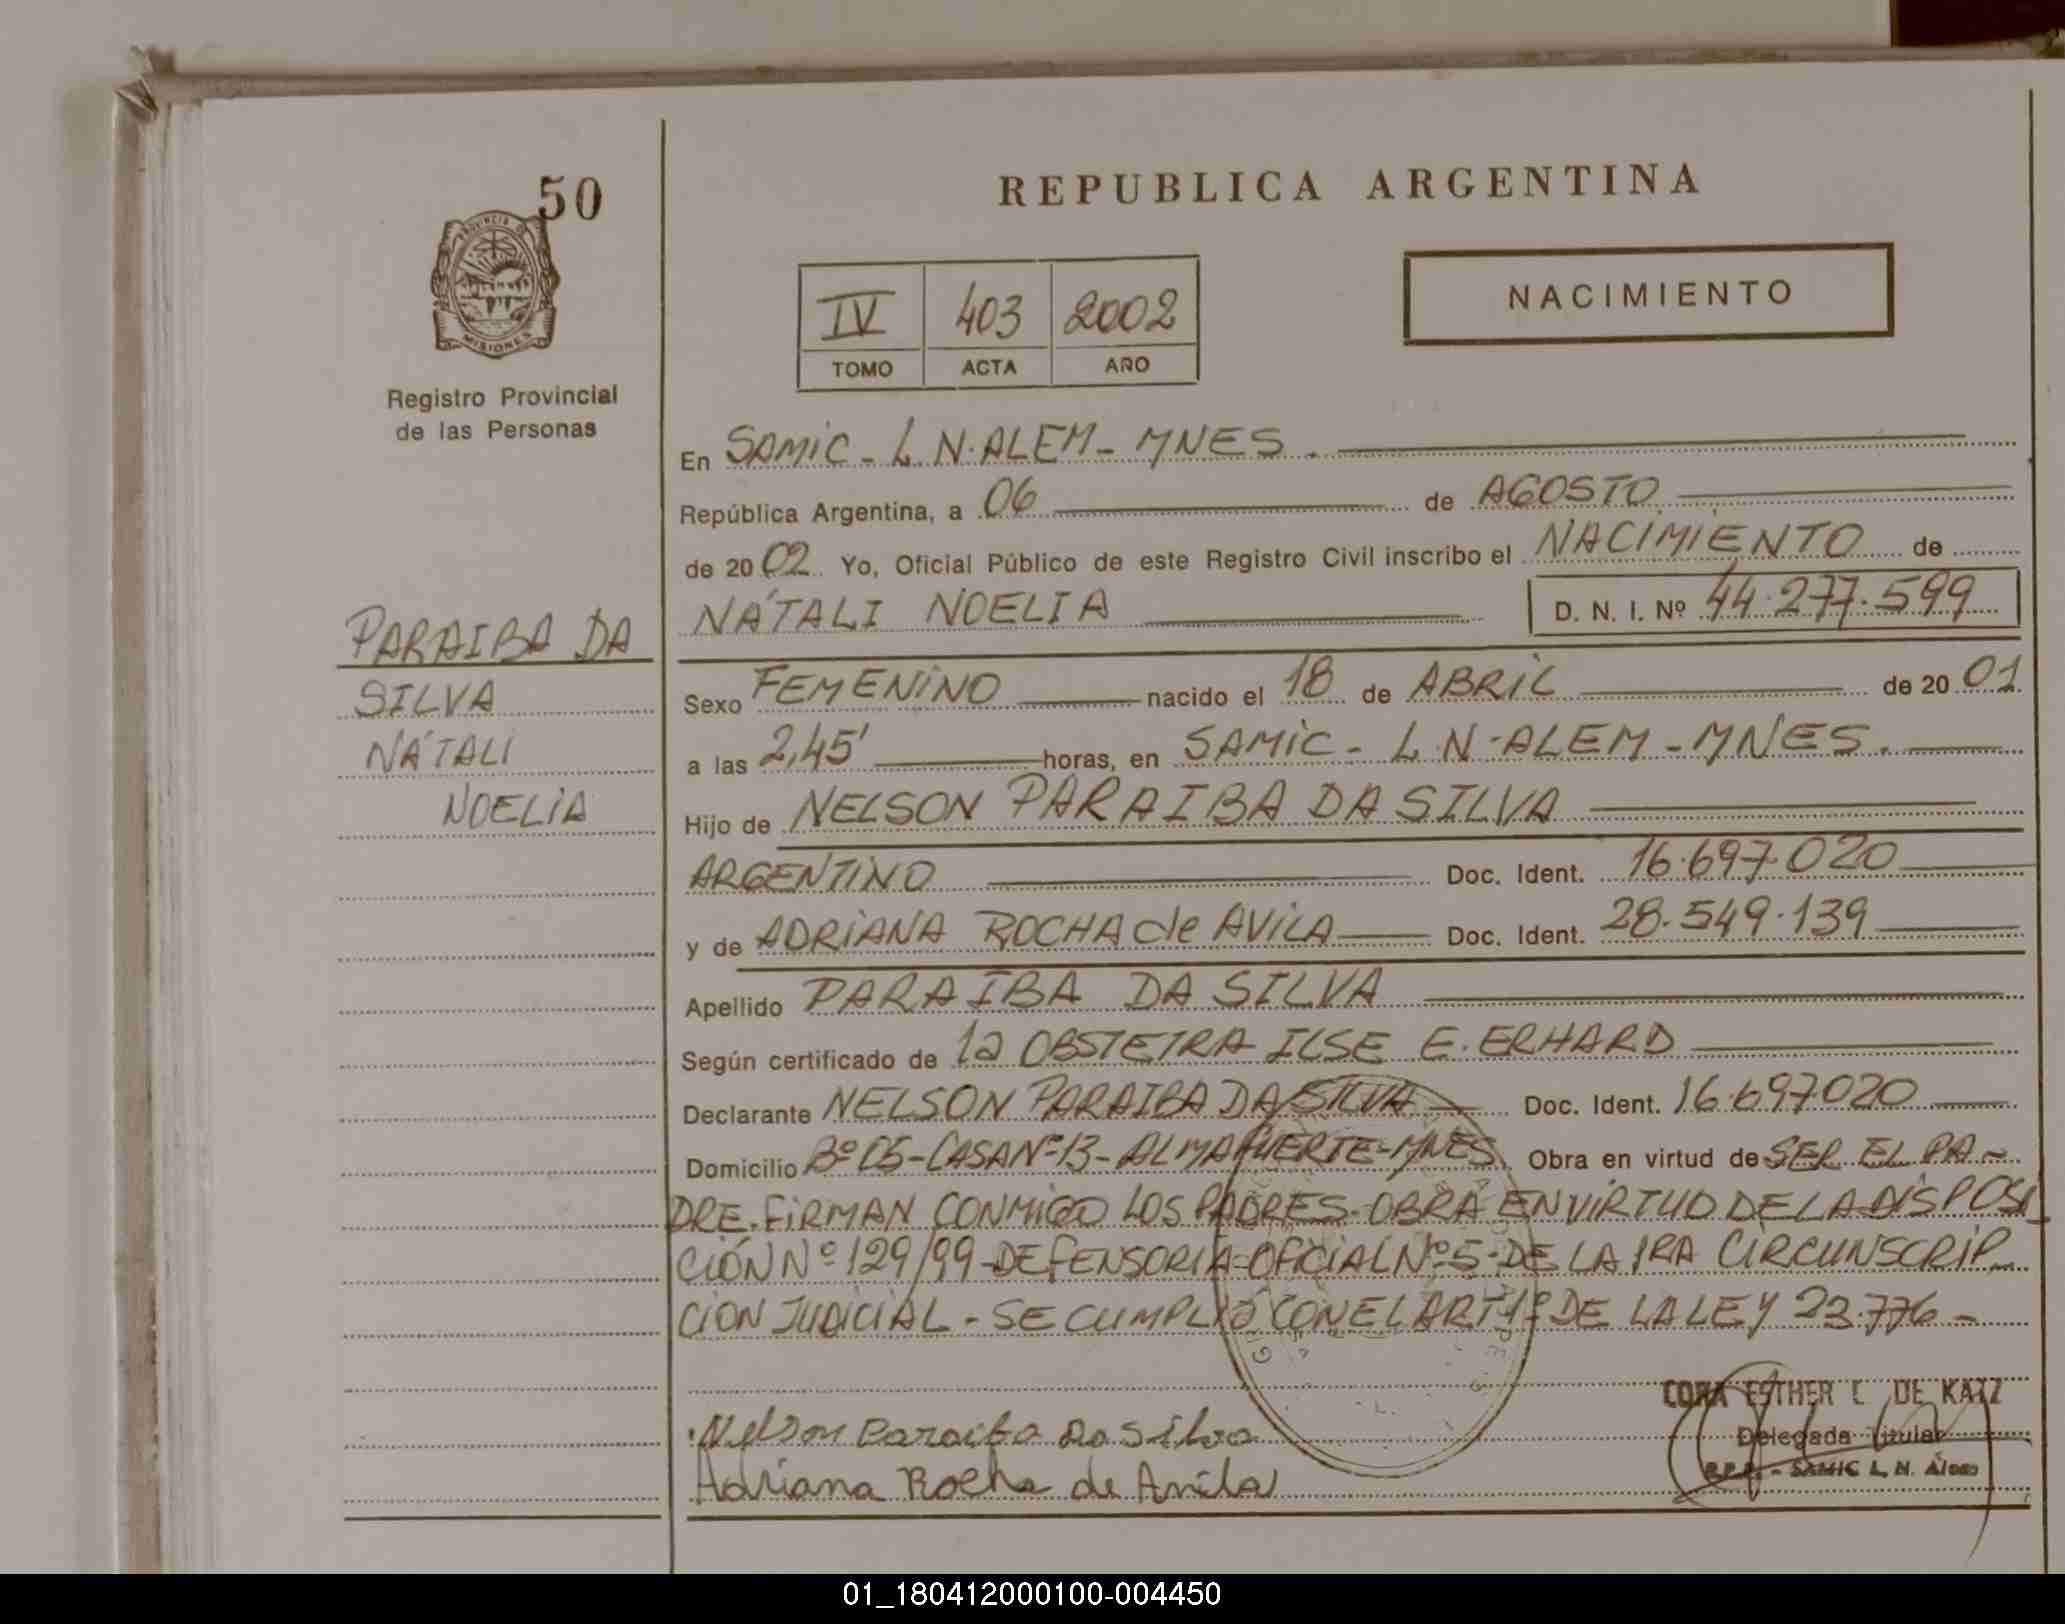 50
PROVINCIA DE
MISIONES
Registro Provincial
de las Personas
REPUBLICA ARGENTINA
IV 403 2002
TOMO ACTA AÑO
NACIMIENTO
En SAMIC - L.N. ALEM - MNES.
República Argentina, a 06 de AGOSTO
de 2002 Yo, Oficial Público de este Registro Civil inscribo el NACIMIENTO de
NÁTALI NOELIA D. N. I. Nº 44.277.599
PARAIBA DA
SILVA
NÁTALI
NOELIA
Sexo FEMENINO nacido el 18 de ABRIL de 2001
a las 2,45' horas, en SAMIC - L.N. ALEM - MNES.
Hijo de NELSON PARAIBA DA SILVA
ARGENTINO Doc. Ident. 16.697.020
y de ADRIANA ROCHA de AVILA Doc. Ident. 28.549.139
Apellido PARAIBA DA SILVA
Según certificado de la OBSTETRA ILSE E. ERHARD
Declarante NELSON PARAIBA DA SILVA Doc. Ident. 16.697020
Domicilio Bº - CASA Nº 13 - ALMAFUERTE - MNES. Obra en virtud de SER EL PA-
DRE. FIRMAN CONMIGO LOS PADRES. OBRA EN VIRTUD DE LA DISPOSI
CIÓN Nº 129/99 - DEFENSORIA OFICIAL Nº 5 - DE LA 1RA CIRCUNSCRIP-
CION JUDICIAL - SE CUMPLIÓ CON EL ART 1º DE LA LEY 23.776 -
Nelson Paraiba Da Silva
Adriana Rocha de Avila
CORA ESTHER L. DE KATZ
Delegada Titular
R.P.P. - SAMIC L. N. Alem
01_180412000100-004450